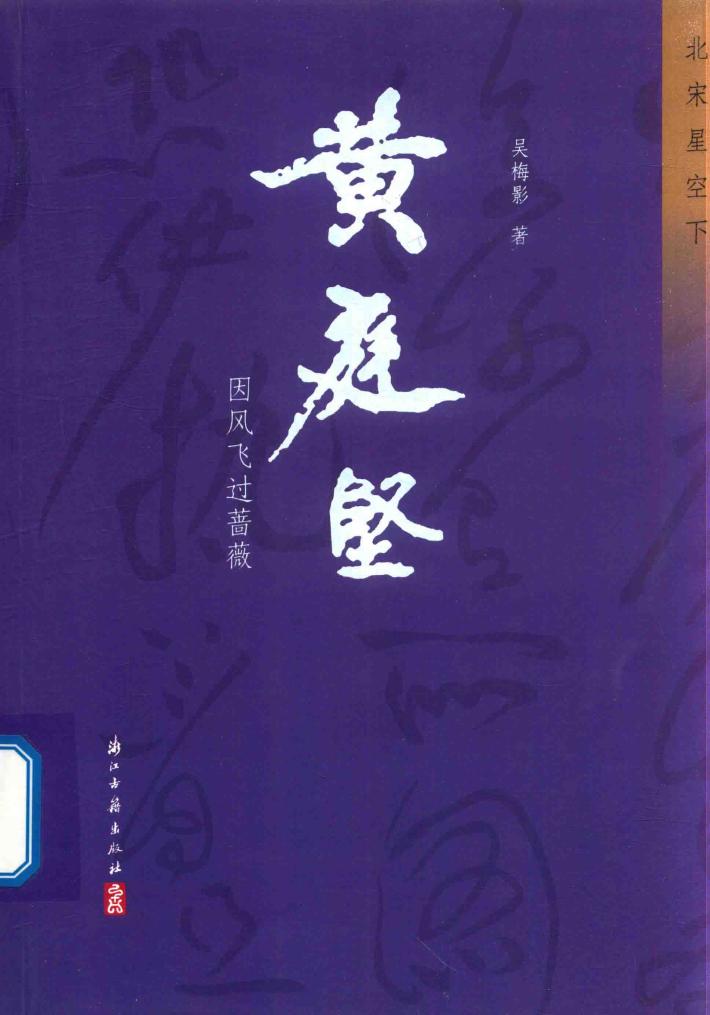 北宋星空下
吴梅影 著
黄庭坚
因风飞过蔷薇
浙江古籍出版社